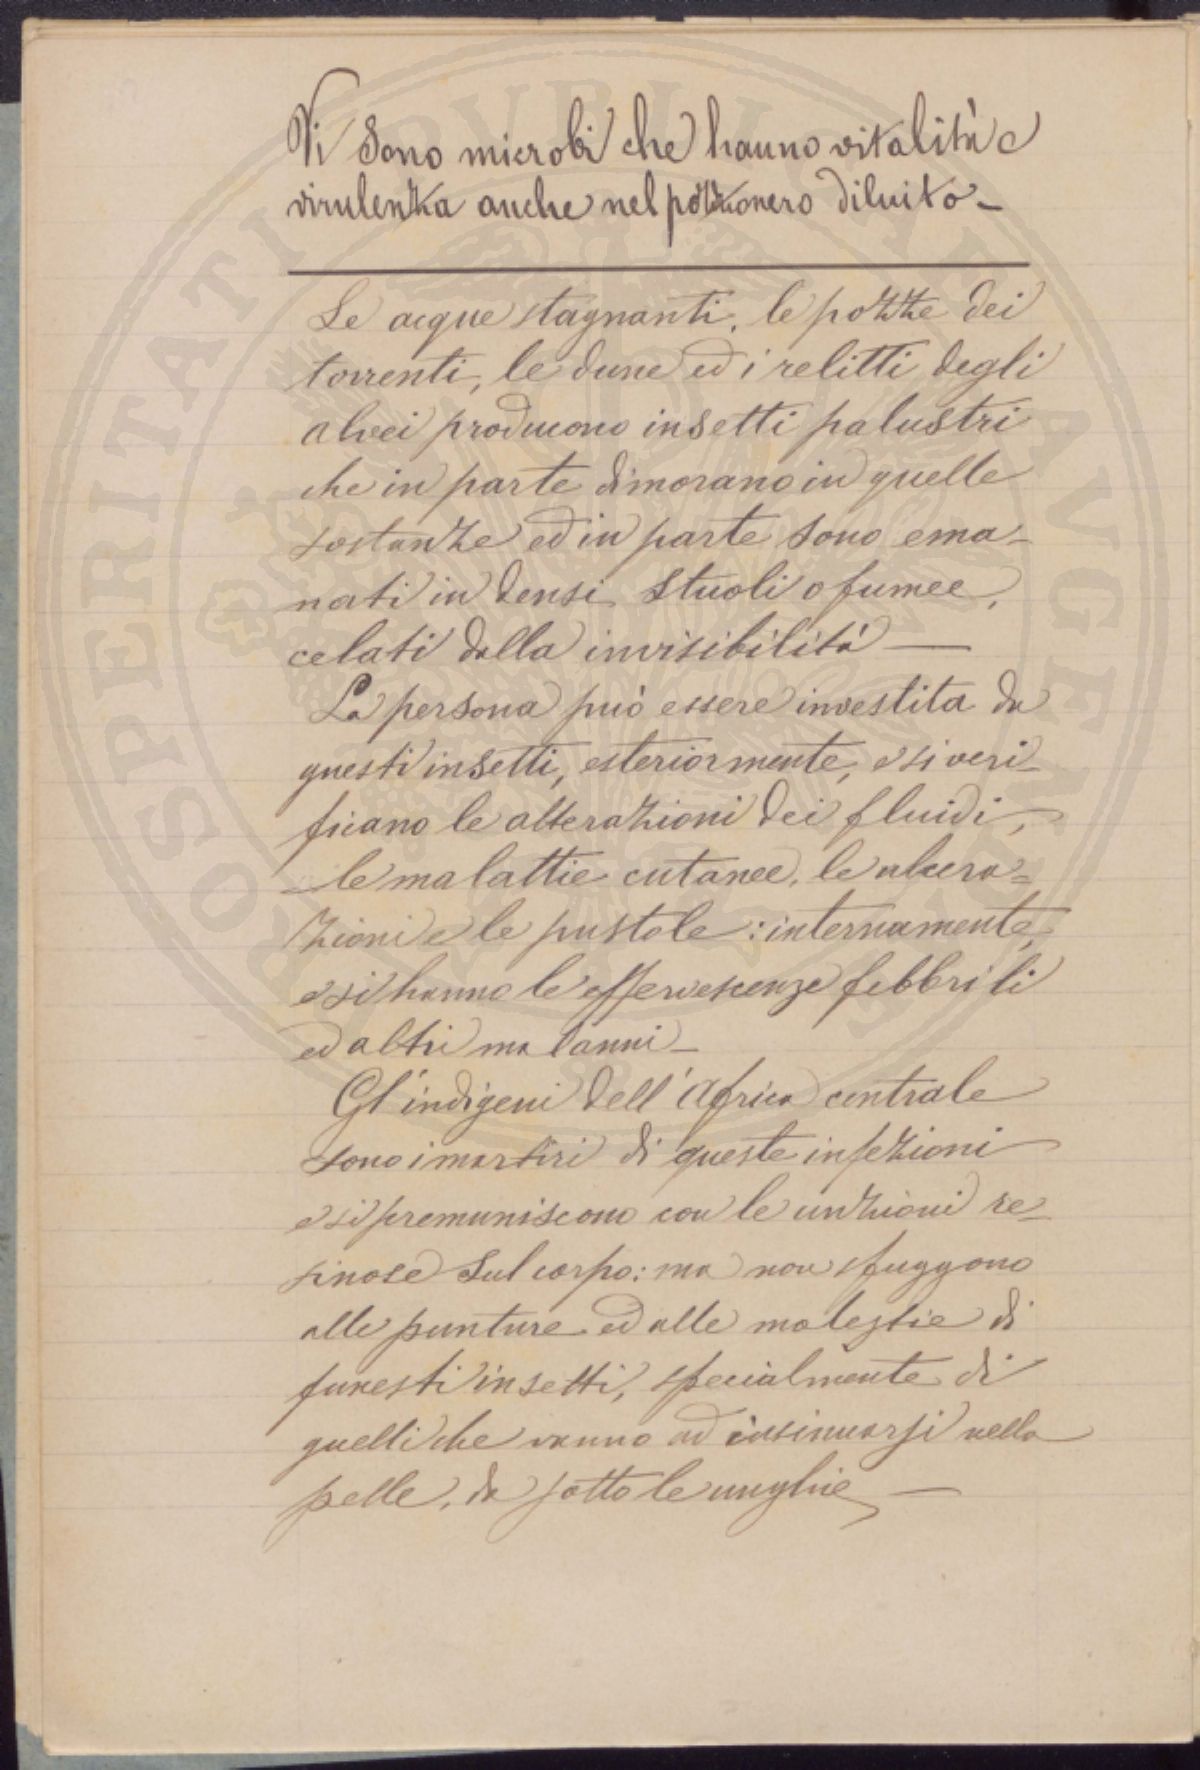 Vi sono microbi che hanno vitalità e
virulenza anche nel pozzonero diluito –
Le acque stagnanti, le pozze dei
torrenti, le dune ed i relitti degli
alvei producono insetti palustri
che in parte dimorano in quelle
sostanze ed in parte sono ema-
nati in densi stuoli o fumee,
celati dalla invisibilità —
La persona può essere investita da
questi insetti, esteriormente, e si veri-
ficano le alterazioni dei fluidi,
le malattie cutanee, le ulcera=
zioni e le pustole: internamente,
e si hanno le effervescenze febbrili
ed altri malanni –
Gl'indigeni dell'Africa centrale
sono i martiri di queste infezioni
e si premuniscono con le unzioni re-
sinose sul corpo: ma non sfuggono
alle punture ed alle molestie di
funesti insetti, specialmente di
quelli che vanno ad insinuarsi nella
pelle, da sotto le unghie —
PROSPERITATI PVBLICAE AVGENDAE